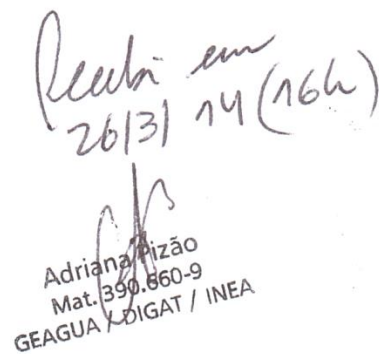 Recebi em
26/3/14 (16h)
Adriana Pizão
Mat. 390.660-9
GEAGUA / DIGAT / INEA